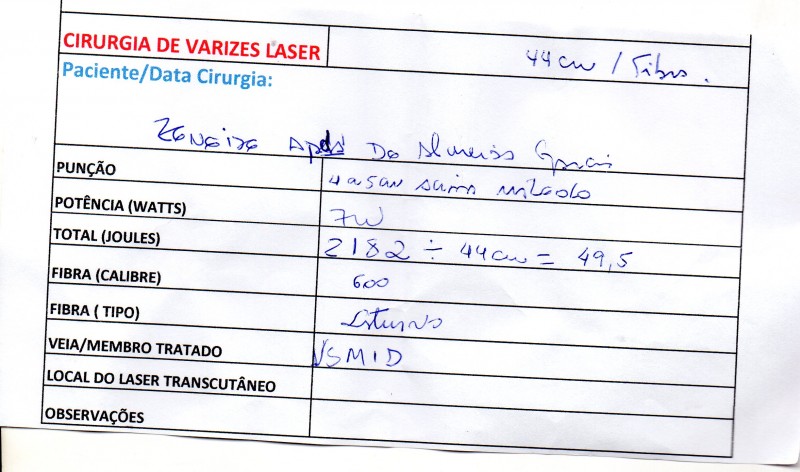 CIRURGIA DE VARIZES LASER 44cm /
Paciente/Data Cirurgia:
Zeneide Apdª De Almeida
PUNÇÃO
POTÊNCIA (WATTS) 7W
TOTAL (JOULES) 2182 ÷ 44cm = 49,5
FIBRA (CALIBRE) 600
FIBRA ( TIPO)
VEIA/MEMBRO TRATADO VSMID
LOCAL DO LASER TRANSCUTÂNEO
OBSERVAÇÕES